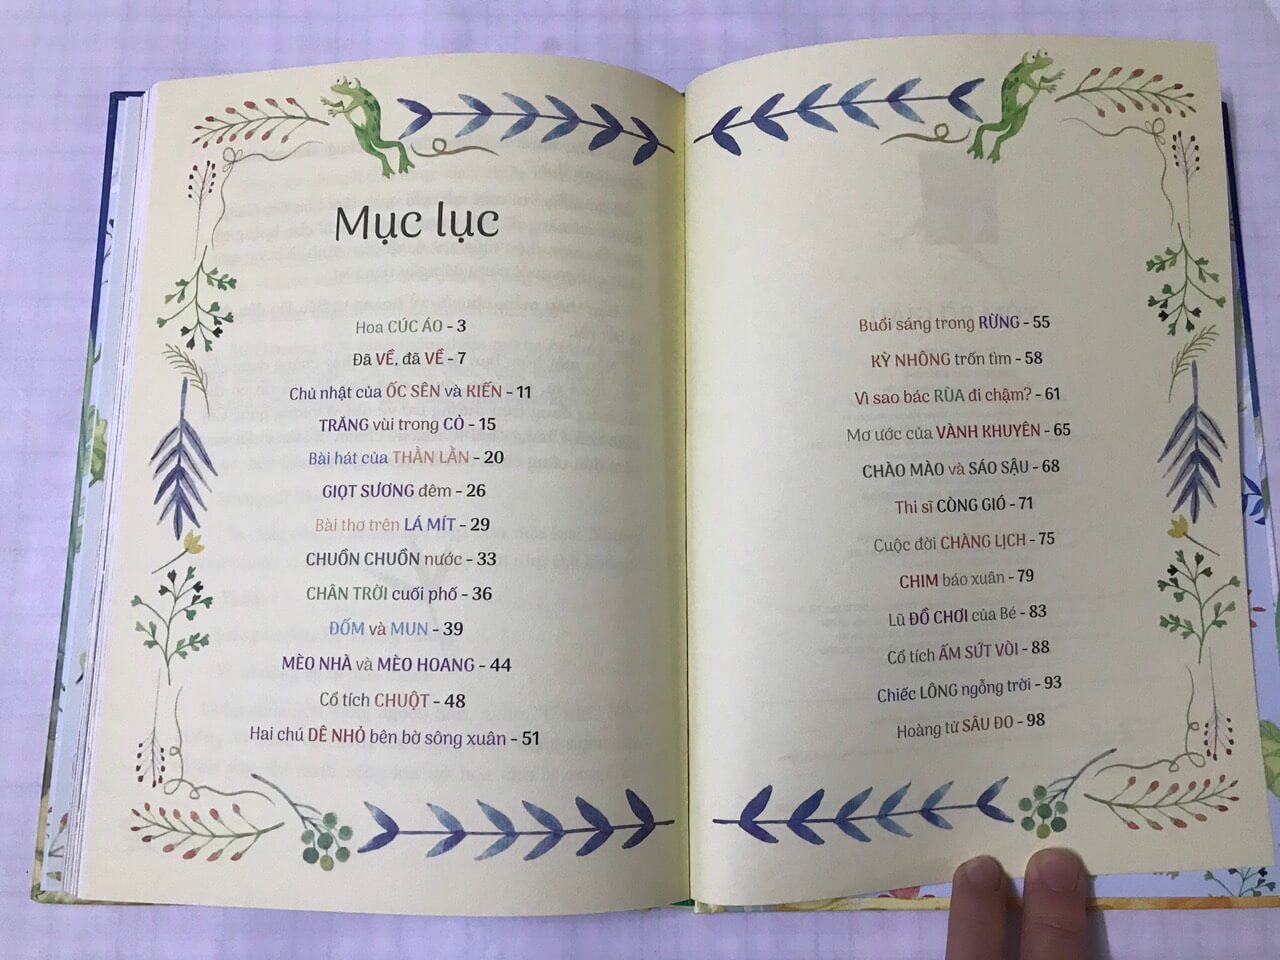 Mục lục
Hoa CÚC ÁO - 3
Đã VỀ, đã VỀ - 7
Chủ nhật của ỐC SÊN và KIẾN - 11
TRĂNG vùi trong CỎ - 15
Bài hát của THẰN LẰN - 20
GIỌT SƯƠNG đêm - 26
Bài thơ trên LÁ MÍT - 29
CHUỒN CHUỒN nước - 33
CHÂN TRỜI cuối phố - 36
ĐỐM và MUN - 39
MÈO NHÀ và MÈO HOANG - 44
Cổ tích CHUỘT - 48
Hai chú DÊ NHỎ bên bờ sông xuân - 51
Buổi sáng trong RỪNG - 55
KỲ NHÔNG trốn tìm - 58
Vì sao bác RÙA đi chậm? - 61
Mơ ước của VÀNH KHUYÊN - 65
CHÀO MÀO và SÁO SẬU - 68
Thi sĩ CÒNG GIÓ - 71
Cuộc đời CHÀNG LỊCH - 75
CHIM báo xuân - 79
Lũ ĐỒ CHƠI của Bé - 83
Cổ tích ẤM SỨT VÒI - 88
Chiếc LÔNG ngỗng trời - 93
Hoàng tử SÂU ĐO - 98